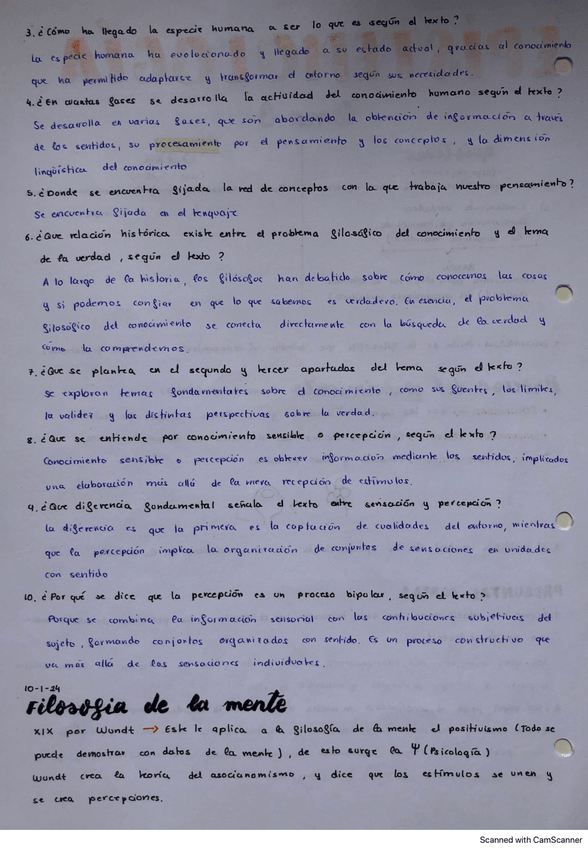 3. ¿Cómo ha llegado la especie humana a ser lo que es según el texto?
La especie humana ha evolucionado y llegado a su estado actual, gracias al conocimiento
que ha permitido adaptarse y transformar el entorno según sus necesidades.
4. ¿En cuantas fases se desarrolla la actividad del conocimiento humano según el texto?
Se desarrolla en varias fases, que son abordando la obtención de información a través
de los sentidos, su procesamiento por el pensamiento y los conceptos, y la dimensión
lingüística del conocimiento
5. ¿Donde se encuentra fijada la red de conceptos con la que trabaja nuestro pensamiento?
Se encuentra fijada en el lenguaje
6. ¿Que relación histórica existe entre el problema filosófico del conocimiento y el tema
de la verdad, según el texto?
A lo largo de la historia, los filósofos han debatido sobre cómo conocemos las cosas
y si podemos confiar en que lo que sabemos es verdadero. En esencia, el problema
filosofico del conocimiento se conecta directamente con la búsqueda de la verdad y
como la comprendemos.
7. ¿Que se plantea en el segundo y tercer apartados del tema según el texto?
Se exploran temas fundamentales sobre el conocimiento, como sus fuentes, los límites,
la validez y las distintas perspectivas sobre la verdad.
8. ¿Que se entiende por conocimiento sensible o percepción, según el texto?
Conocimiento sensible o percepción es obtener información mediante los sentidos, implicados
una elaboración más allá de la mera recepción de estímulos.
9. ¿Que diferencia fundamental señala el texto entre sensación y percepción?
La diferencia es que la primera es la captación de cualidades del entorno, mientras
que la percepción implica la organización de conjuntos de sensaciones en unidades
con sentido
10. ¿Por qué se dice que la percepción es un proceso bipolar, según el texto?
Porque se combina la información sensorial con las contribuciones subjetivas del
sujeto, formando conjuntos organizados con sentido. Es un proceso constructivo que
va más allá de las sensaciones individuales.
10-1-24
Filosofia de la mente
XIX por Wundt → Este le aplica a la filosofía de la mente el positivismo (Todo se
puede demostrar con datos de la mente), de esto surge la Ψ (Psicología)
Wundt crea la teoría del asocianomismo, y dice que los estímulos se unen y
se crea percepciones.
Scanned with CamScanner